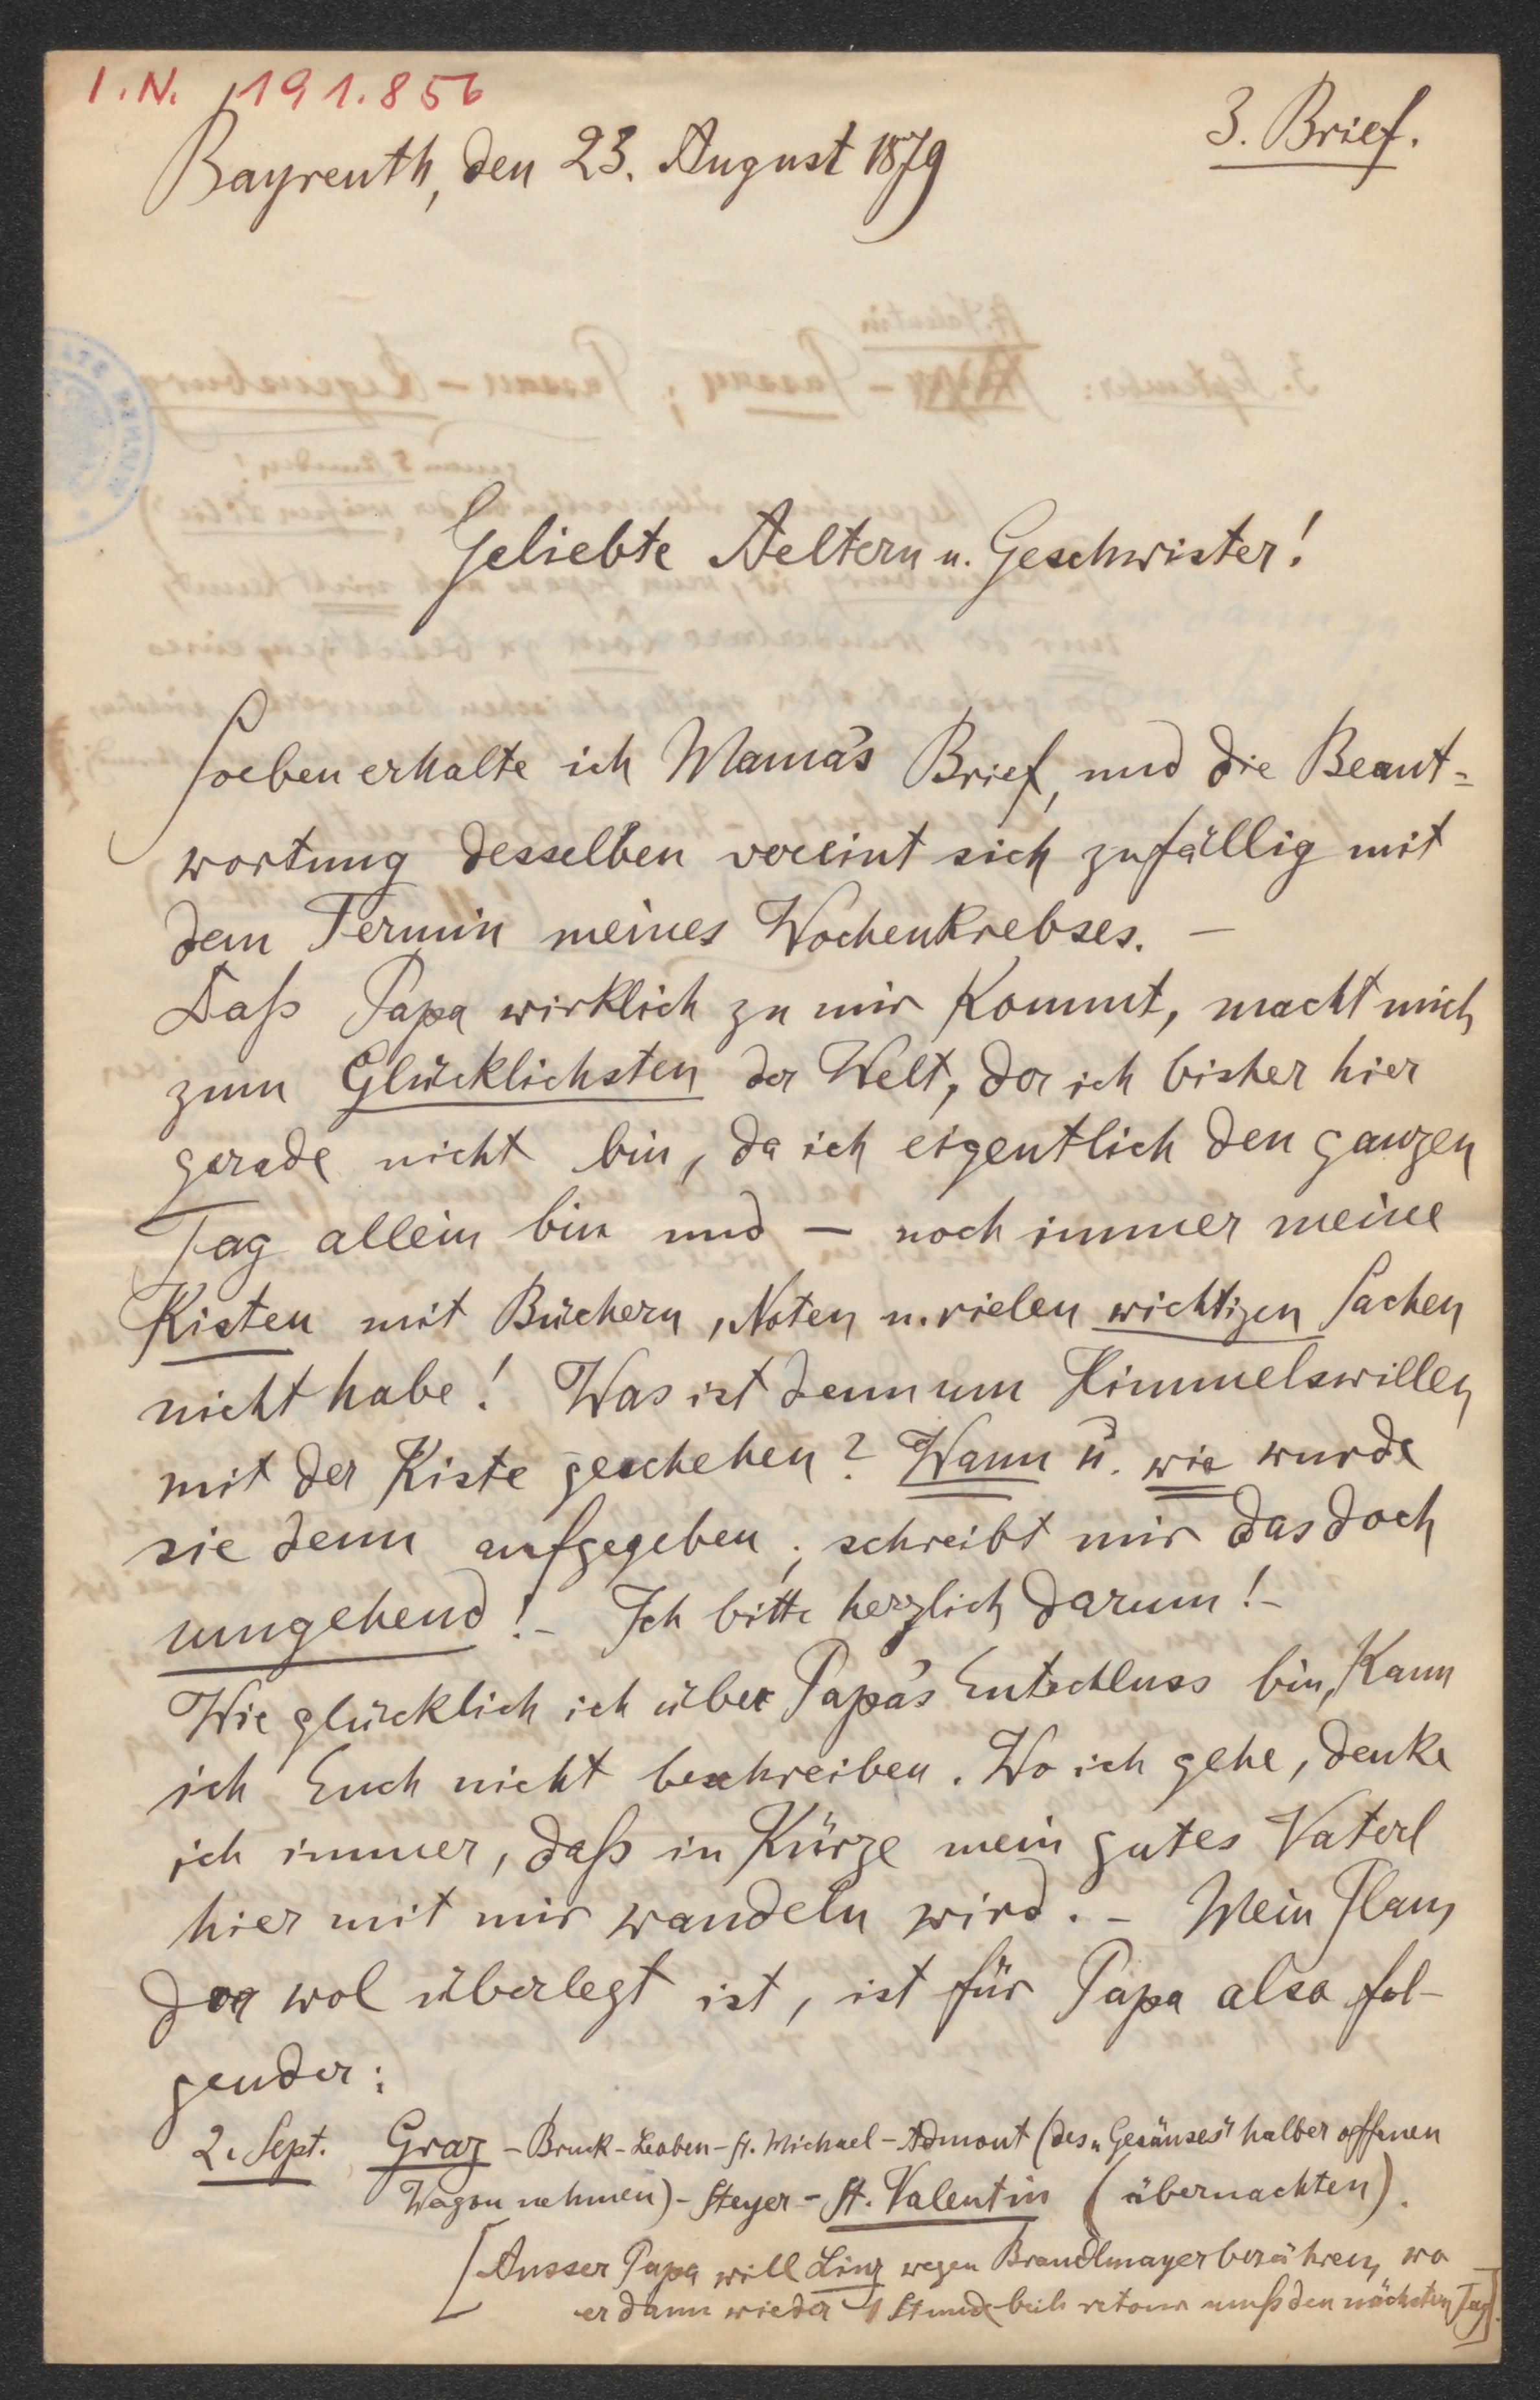 I.N. 191.856
3. Brief.
Bayreuth, den 23. August 1879
Geliebte Aeltern u. Geschwister!
Soeben erhalte ich Mama's Brief, und die Beant=
wortung desselben vereint sich zufällig mit
dem Termin meines Wochenkrebses. —
Daß Papa wirklich zu mir kommt, macht mich
zum Glücklichsten der Welt, der ich bisher hier
gerade nicht bin, da ich eigentlich den ganzen
Tag allein bin und — noch immer meine
Kisten mit Büchern, Noten u. vielen wichtigen Sachen
nicht habe! Was ist denn um Himmelswillen
mit der Kiste geschehen? Wann u. wie wurde
sie denn aufgegeben; schreibt mir das doch
umgehend! - Ich bitte herzlich darum! -
Wie glücklich ich über Papa's Entschluss bin, kann
ich Euch nicht beschreiben. Wo ich gehe, denke
ich immer, daß in Kürze mein gutes Vaterl
hier mit mir wandeln wird. - Mein Plan,
der wol überlegt ist, ist für Papa also fol-
gender:
2. Sept. Graz - Bruck - Leoben - St. Michael - Admont (des „Gesäuses" halber offenen
Wagon nehmen) - Steyer - St. Valentin (übernachten).
[Ausser Papa will Linz wegen Brandlmayer berühren, wo
er dann wieder 1 Stunde beil. retour muß den nächsten Tag].